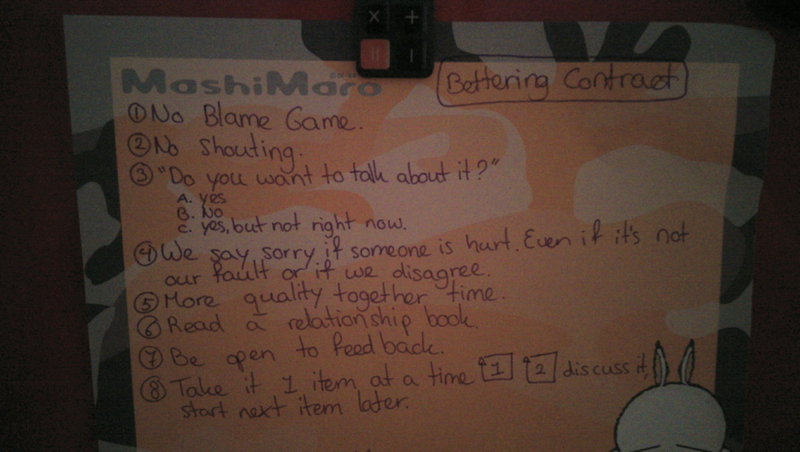 MashiMaro
Bettering Contract
① No Blame Game.
② No Shouting.
③ "Do you want to talk about it?"
A. yes
B. No
C. yes, but not right now.
④ We say sorry if someone is hurt. Even if it's not
our fault or if we disagree.
⑤ More quality together time.
⑥ Read a relationship book.
⑦ Be open to feedback.
⑧ Take it 1 item at a time 1 2 discuss it,
start next item later.